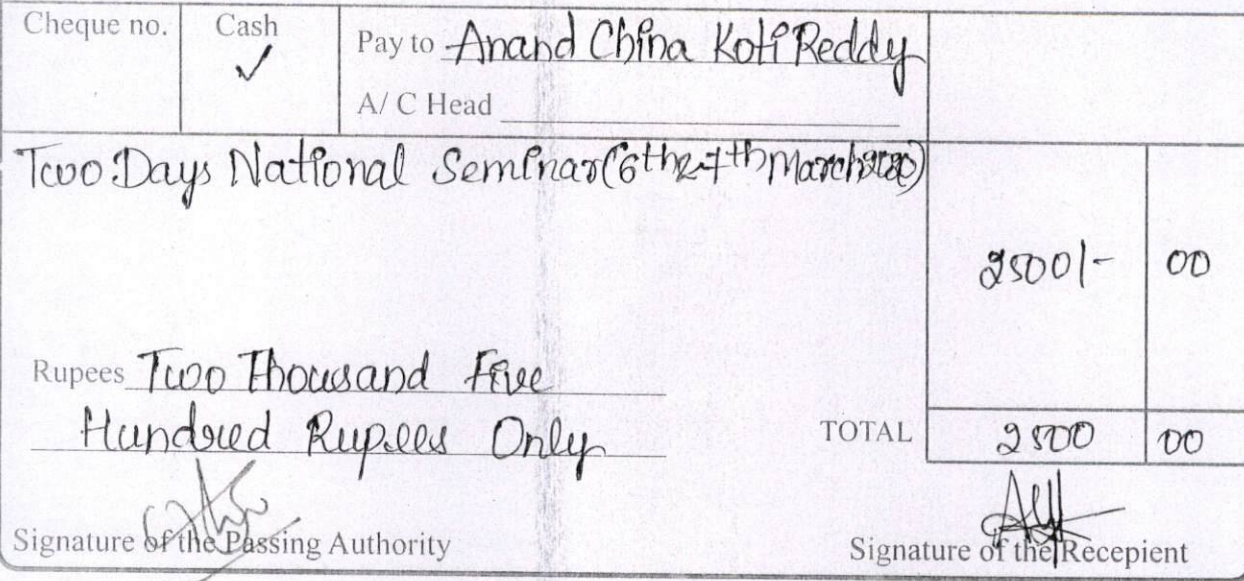 Cheque no. Cash Pay to Anand China Koti Reddy
✓
A/ C Head
Two Days National Seminar (6th & 7th March
2500/- 00
Rupees Two Thousand Five
Hundred Rupees Only TOTAL 2500 00
Signature of the Passing Authority Signature of the Recepient